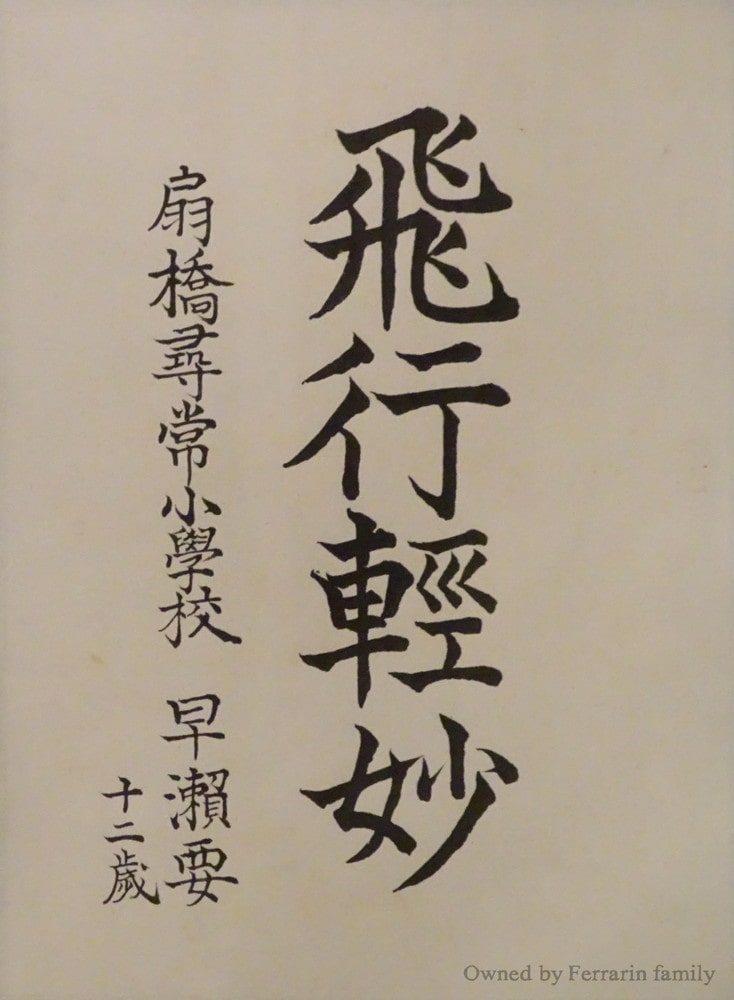 飛行輕妙
扇橋尋常小學校　早瀨要
十二歲
Owned by Ferrarin family